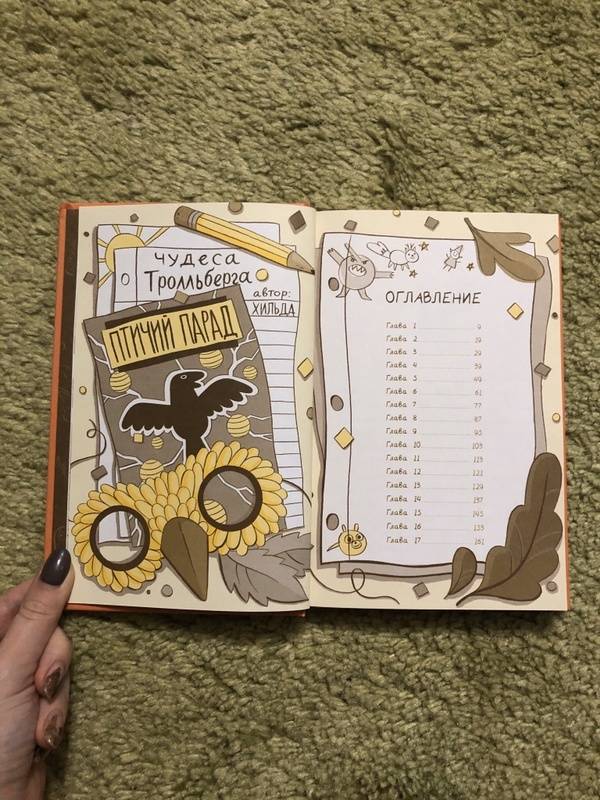 чудеса
Тролльберга
автор:
ХИЛЬДА
ПТИЧИЙ ПАРАД
ОГЛАВЛЕНИЕ
Глава 1 9
Глава 2 19
Глава 3 29
Глава 4 39
Глава 5 49
Глава 6 61
Глава 7 77
Глава 8 87
Глава 9 95
Глава 10 103
Глава 11 113
Глава 12 121
Глава 13 129
Глава 14 137
Глава 15 145
Глава 16 153
Глава 17 161